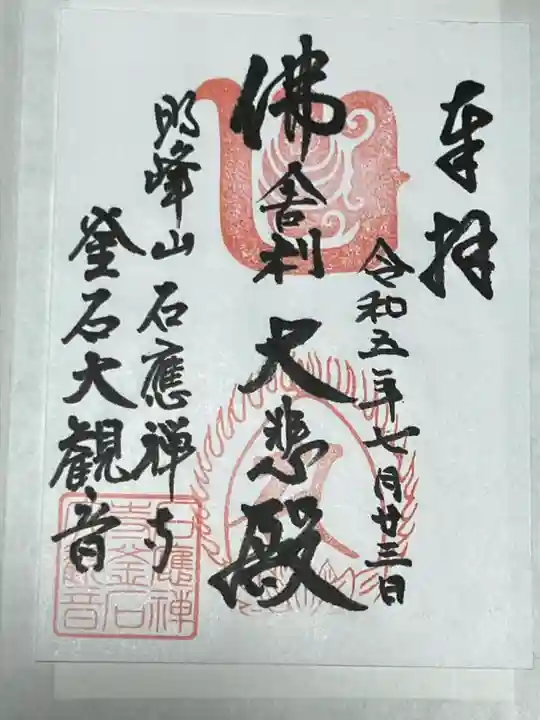 奉拝
令和五年七月廿三日
佛舎利 大悲殿
明峰山 石應禅寺
釜石大観音
石應禅
寺釜石
大観音